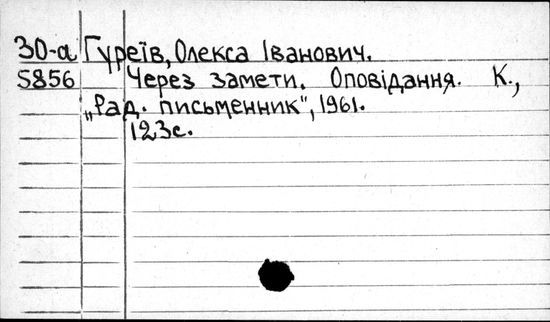 30-а Гуреїв, Олекса Іванович.
5856 Через замети. Оповідання. К.,
„Рад. письменник", 1961.
123с.